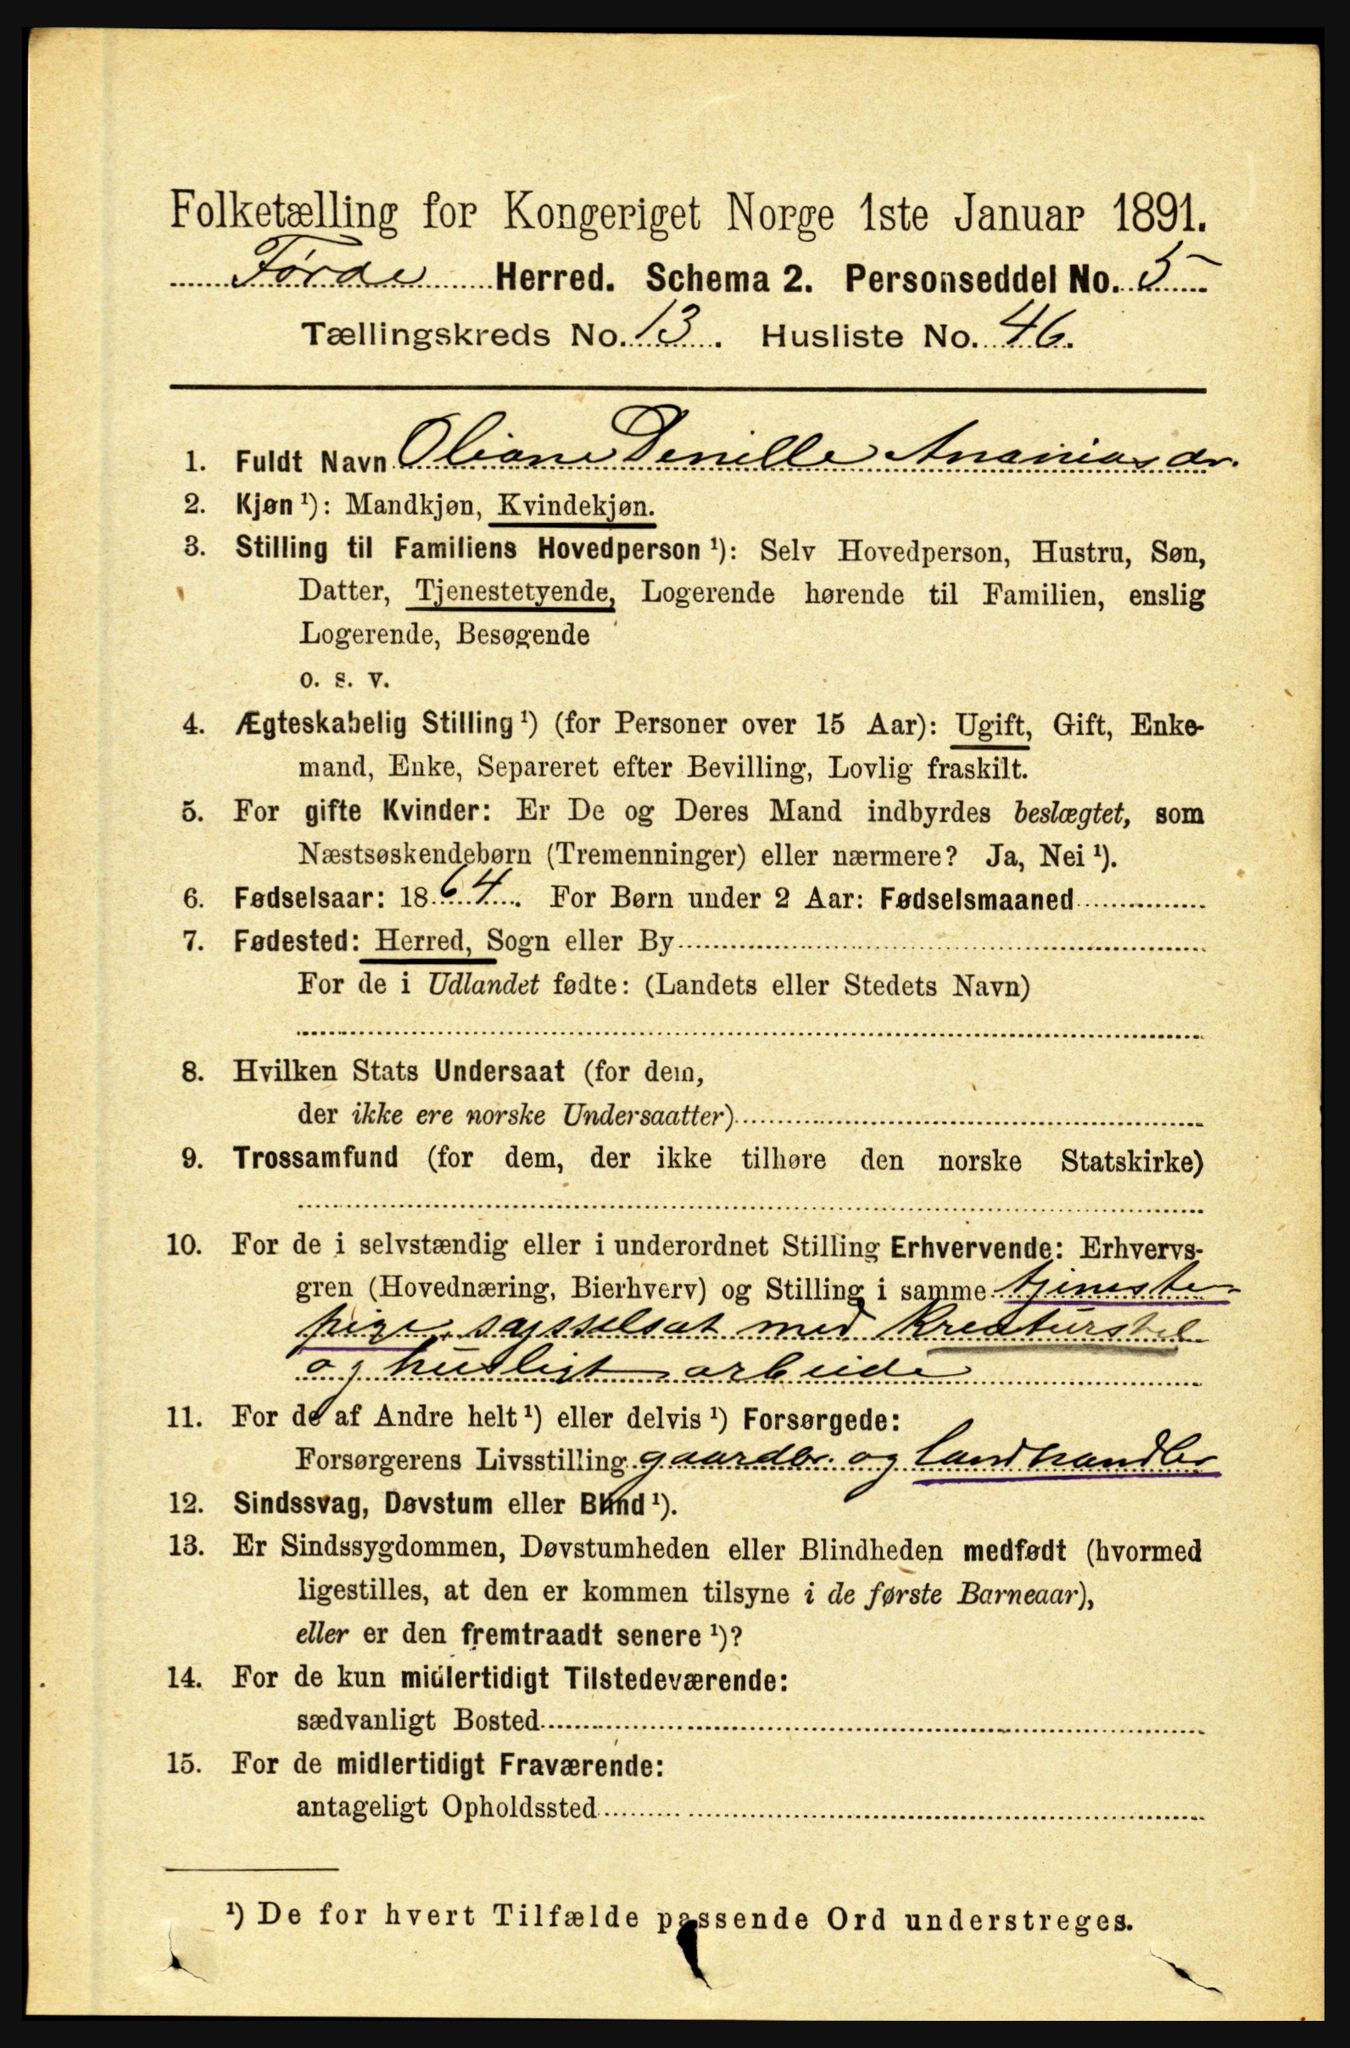 Folketælling for Kongeriget Norge 1ste Januar 1891.
Førde Herred. Schema 2. Personseddel No. 5
Tællingskreds No. 13. Husliste No. 46.
1. Fuldt Navn Oliane Penille Ananiasdr.
2. Kjøn ¹): Mandkjøn, Kvindekjøn.
3. Stilling til Familiens Hovedperson ¹): Selv Hovedperson, Hustru, Søn,
Datter, Tjenestetyende, Logerende hørende til Familien, enslig
Logerende, Besøgende
o. s. v.
4. Ægteskabelig Stilling ¹) (for Personer over 15 Aar): Ugift, Gift, Enke-
mand, Enke, Separeret efter Bevilling, Lovlig fraskilt.
5. For gifte Kvinder: Er De og Deres Mand indbyrdes beslægtet, som
Næstsøskendebørn (Tremenninger) eller nærmere? Ja, Nei ¹).
6. Fødselsaar: 1864. For Børn under 2 Aar: Fødselsmaaned
7. Fødested: Herred, Sogn eller By
For de i Udlandet fødte: (Landets eller Stedets Navn)
8. Hvilken Stats Undersaat (for dem,
der ikke ere norske Undersaatter)
9. Trossamfund (for dem, der ikke tilhøre den norske Statskirke)
10. For de i selvstændig eller i underordnet Stilling Erhvervende: Erhvervs-
gren (Hovednæring, Bierhverv) og Stilling i samme tjeneste-
pige, sysselsat med Kreaturstel
og husligt arbeide
11. For de af Andre helt ¹) eller delvis ¹) Forsørgede:
Forsørgerens Livsstilling gaardbr. og landhandler
12. Sindssvag, Døvstum eller Blind ¹).
13. Er Sindssygdommen, Døvstumheden eller Blindheden medfødt (hvormed
ligestilles, at den er kommen tilsyne i de første Barneaar),
eller er den fremtraadt senere ¹)?
14. For de kun midlertidigt Tilstedeværende:
sædvanligt Bosted
15. For de midlertidigt Fraværende:
antageligt Opholdssted
¹) De for hvert Tilfælde passende Ord understreges.